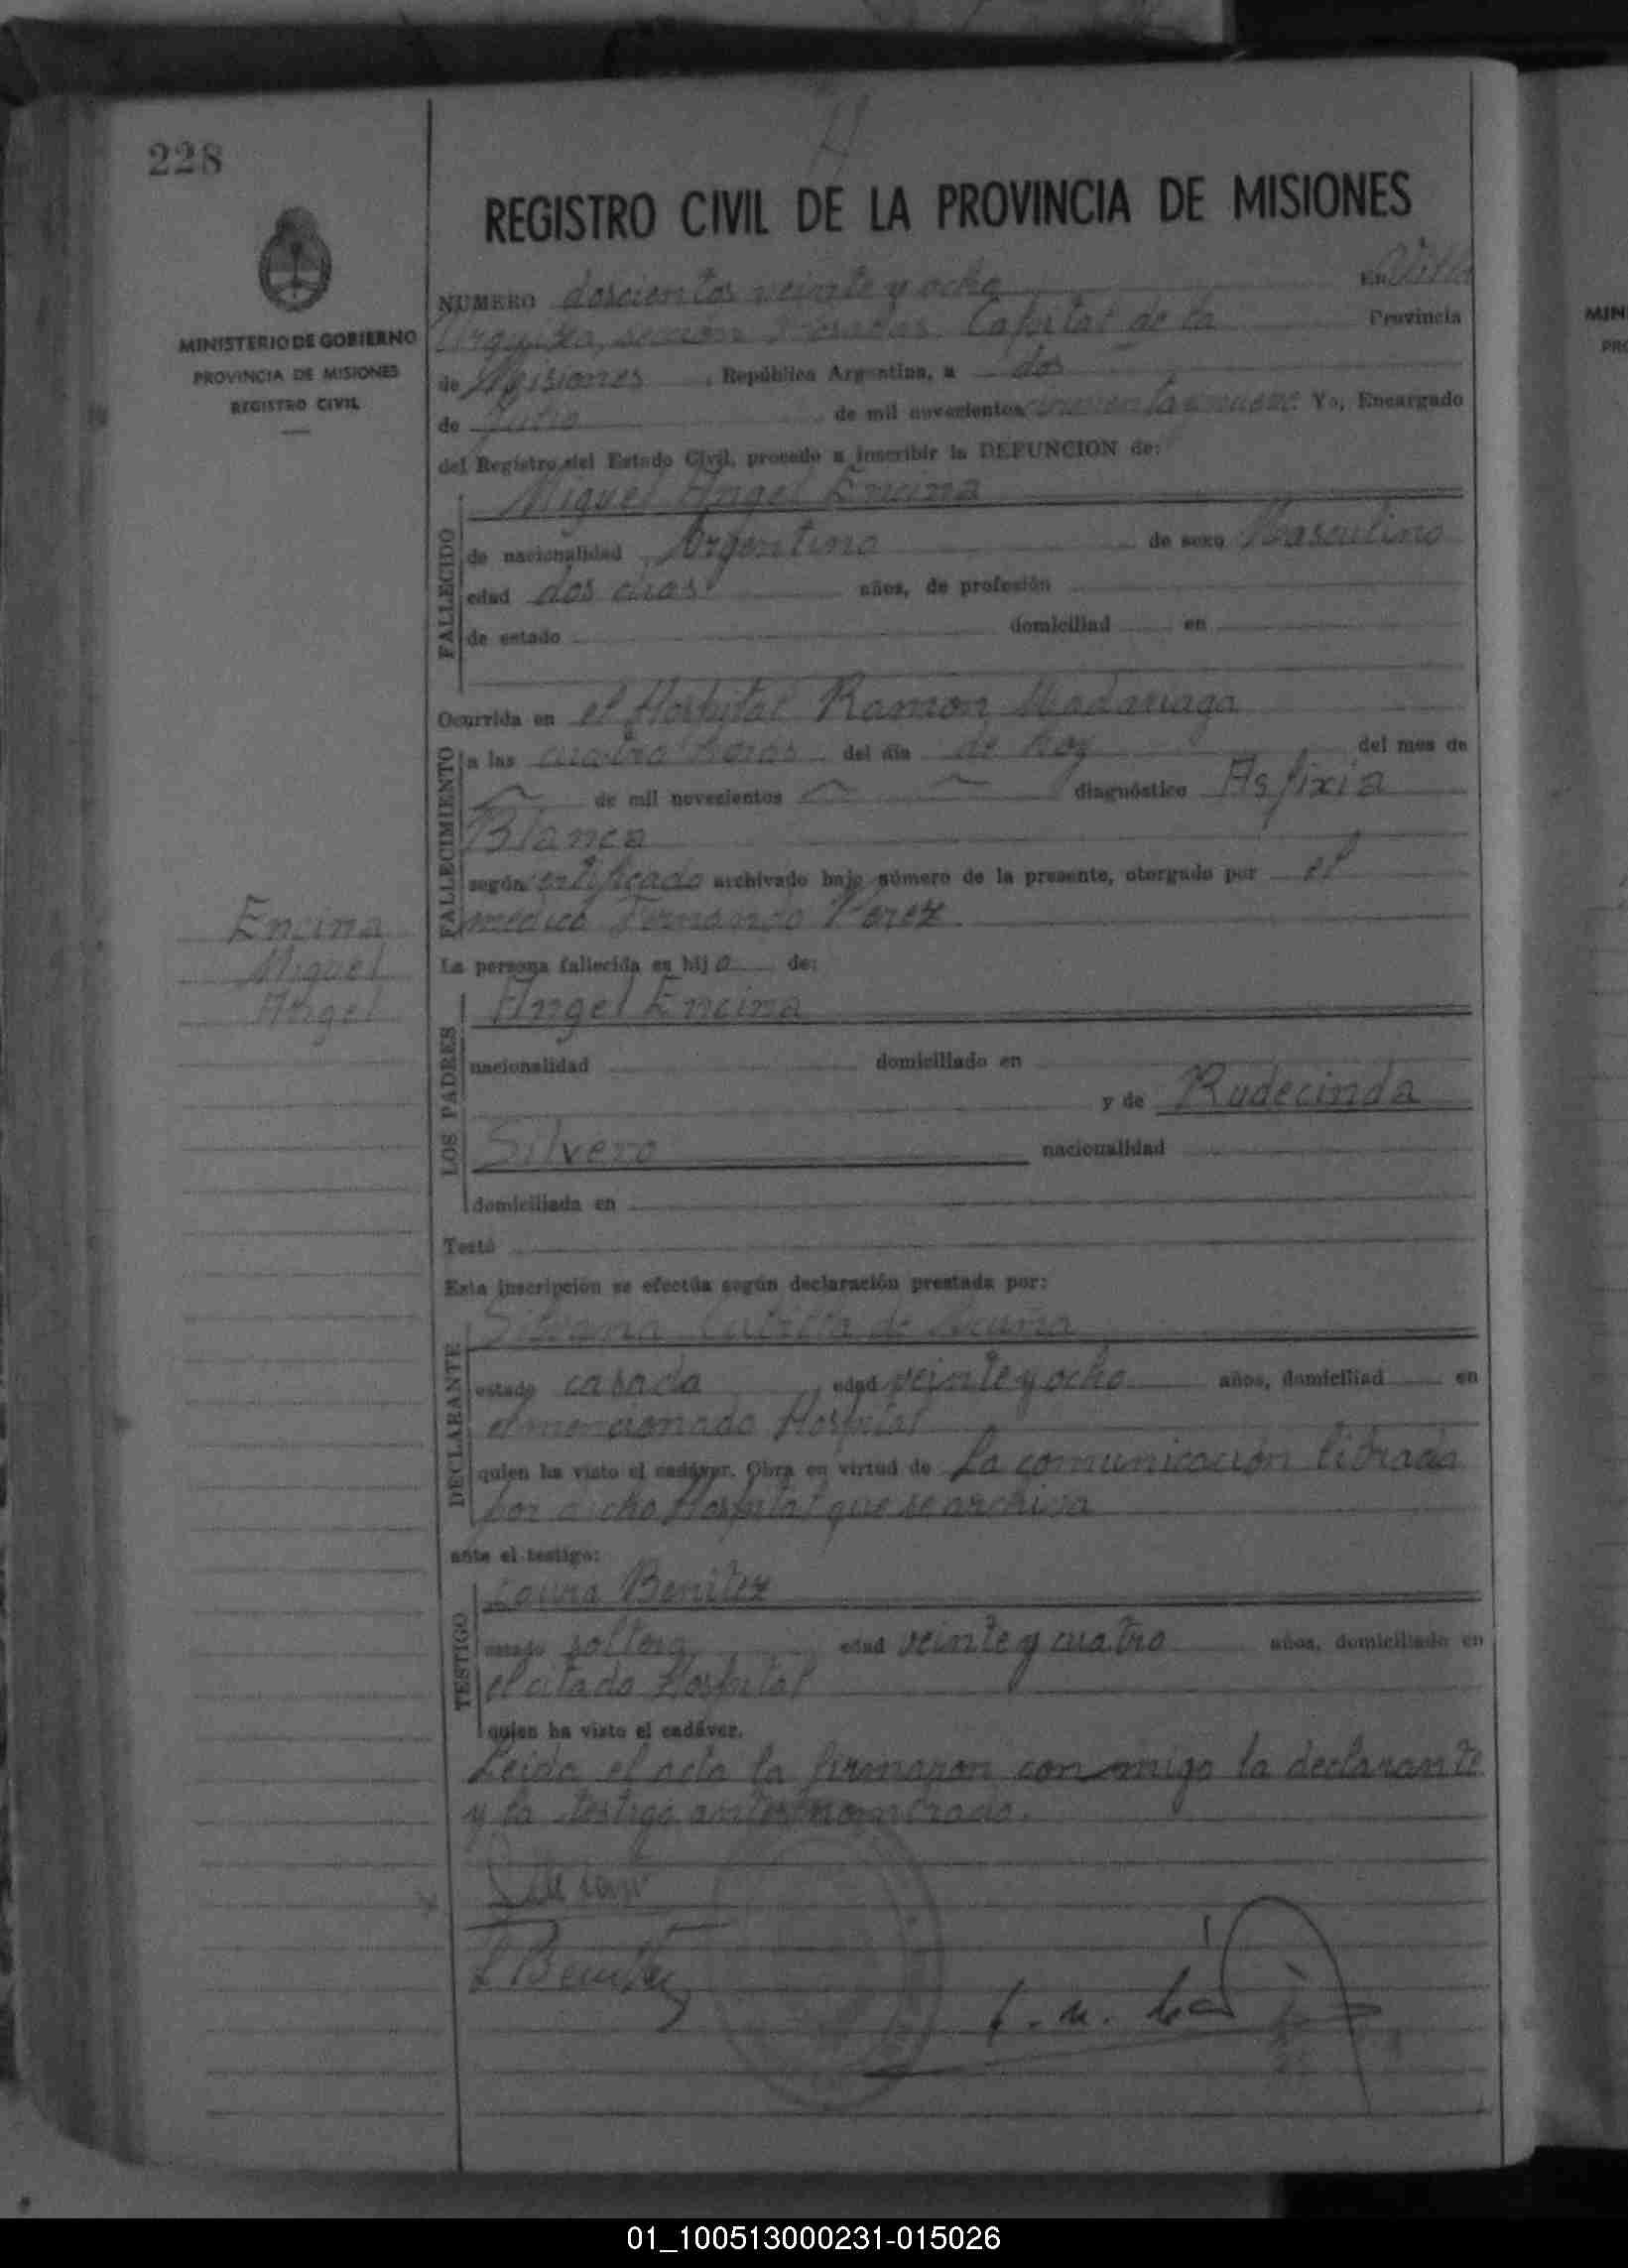 228
REGISTRO CIVIL DE LA PROVINCIA DE MISIONES
MINISTERIO DE GOBIERNO
PROVINCIA DE MISIONES
REGISTRO CIVIL
NUMERO doscientos veinte y ocho En Villa
Urquiza, sección Posadas Capital de la Provincia
de Misiones, República Argentina, a dos
de Julio de mil novecientos cincuenta y nueve Yo, Encargado
del Registro del Estado Civil, procedo a inscribir la DEFUNCION de:
FALLECIDO
Miguel Angel Encina
de nacionalidad Argentino de sexo Masculino
edad dos dias años, de profesión
de estado domiciliad en
Ocurrida en el Hospital Ramon Madariaga
FALLECIMIENTO
a las cuatro horas del día de hoy del mes de
de mil novecientos diagnóstico Asfixia
Blanca
según certificado archivado bajo número de la presente, otorgado por el
médico Fernando Perez
Encina
Miguel
Angel
La persona fallecida es hijo de:
LOS PADRES
Angel Encina
nacionalidad domiciliado en
y de Rudecinda
Silvero nacionalidad
domiciliada en
Testó
Esta inscripción se efectúa según declaración prestada por:
DECLARANTE
de Acuña
estado casada edad veinte y ocho años, domiciliad en
el mencionado Hospital
quien ha visto el cadáver. Obra en virtud de La comunicación librada
por dicho Hospital que se archiva
ante el testigo:
TESTIGO
Laura Benitez
estado soltera edad veinte y cuatro años, domiciliado en
el citado Hospital
quien ha visto el cadáver.
Leida el acta la firmaron conmigo la declarante
y la testigo antes nombrada.
L Benitez
MIN
PRO
01_100513000231-015026